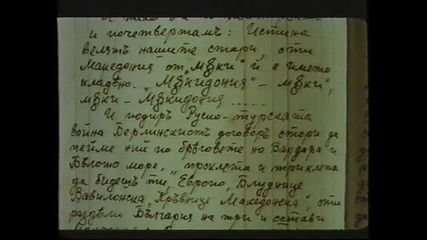 и почетвертамъ: Истина
велятъ нашите стари, оти
Македония от „Мѫки" й е името
кладено. „Мѫкидония" – мѫки",
мѫки – Мѫкидония......
И подиръ Русно-турската
война Берлинскиот договоръ стори да
пейме ний по брѣговете на Вардара и
Бѣлото море, "проклета и триклета
да бидешъ ти, Европо, Блуднице
Вавилонска, Кръвнице Македонска" оти
раздѣли България на три и остави